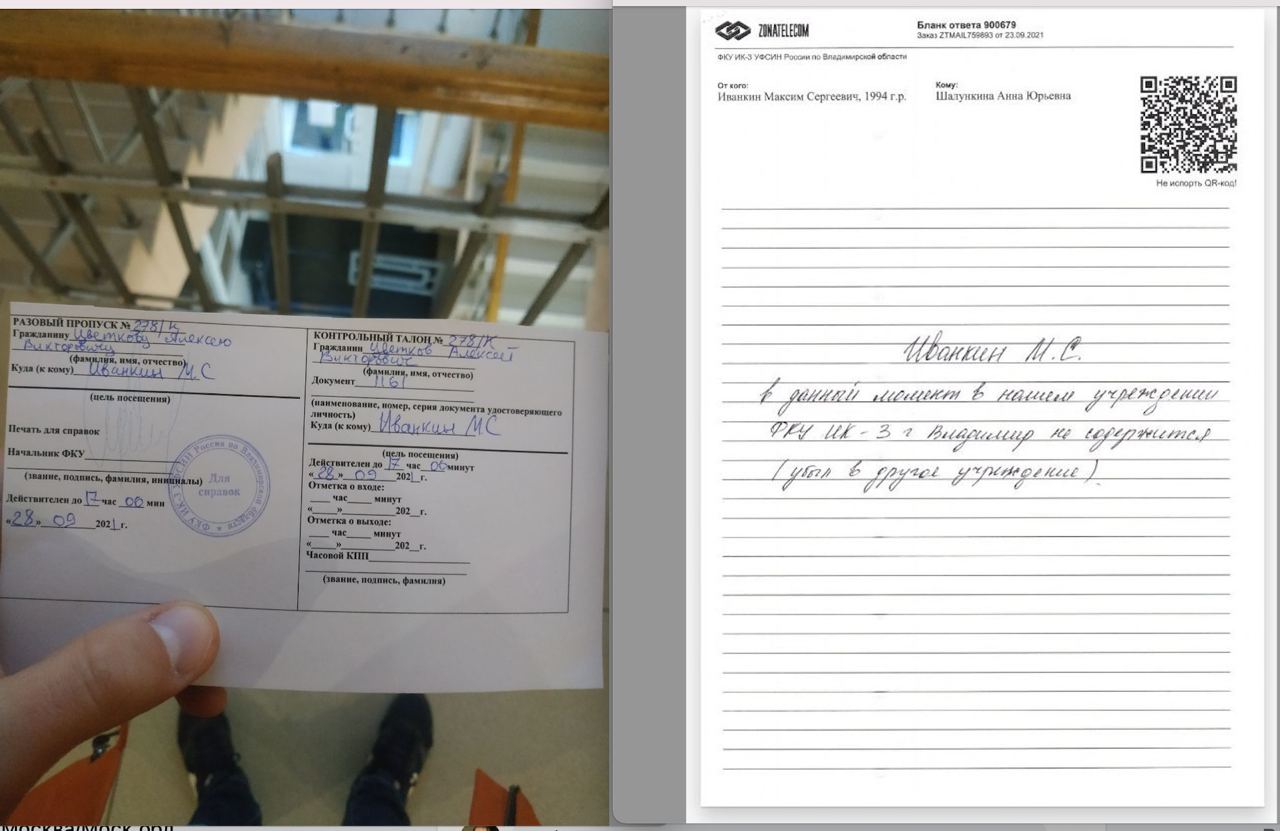 РАЗОВЫЙ ПРОПУСК № 278/К
Гражданину Цветкову Алексею
Викторовичу
(фамилия, имя, отчество)
Куда (к кому) Иванкин М.С
(цель посещения)
Печать для справок
Начальник ФКУ
(звание, подпись, фамилия, инициалы)
Действителен до 17 час 00 мин
«28» 09 2021 г.
Для
справок
ФКУ ИК-3 УФСИН России по Владимирской области
КОНТРОЛЬНЫЙ ТАЛОН № 278/К
Гражданин Цветков Алексей
Викторович
(фамилия, имя, отчество)
Документ 1161
(наименование, номер, серия документа удостоверяющего
личность)
Куда (к кому) Иванкин МС
(цель посещения)
Действителен до 17 час 00 минут
«28» 09 2021 г.
Отметка о входе:
час минут
« » 202 г.
Отметка о выходе:
час минут
« » 202 г.
Часовой КПП
(звание, подпись, фамилия)
ZONATELECOM
Бланк ответа 900679
Заказ ZTMAIL759893 от 23.09.2021
ФКУ ИК-3 УФСИН России по Владимирской области
От кого:
Иванкин Максим Сергеевич, 1994 г.р.
Кому:
Шалункина Анна Юрьевна
Не испорть QR-код!
Иванкин М.С.
в данный момент в нашем учреждении
ФКУ ИК-3 г Владимир не содержится
(убыл в другое учреждение).